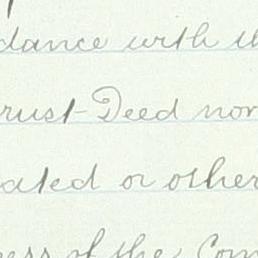 dance with th
rust Deed nor
ated or other
ess of the Com